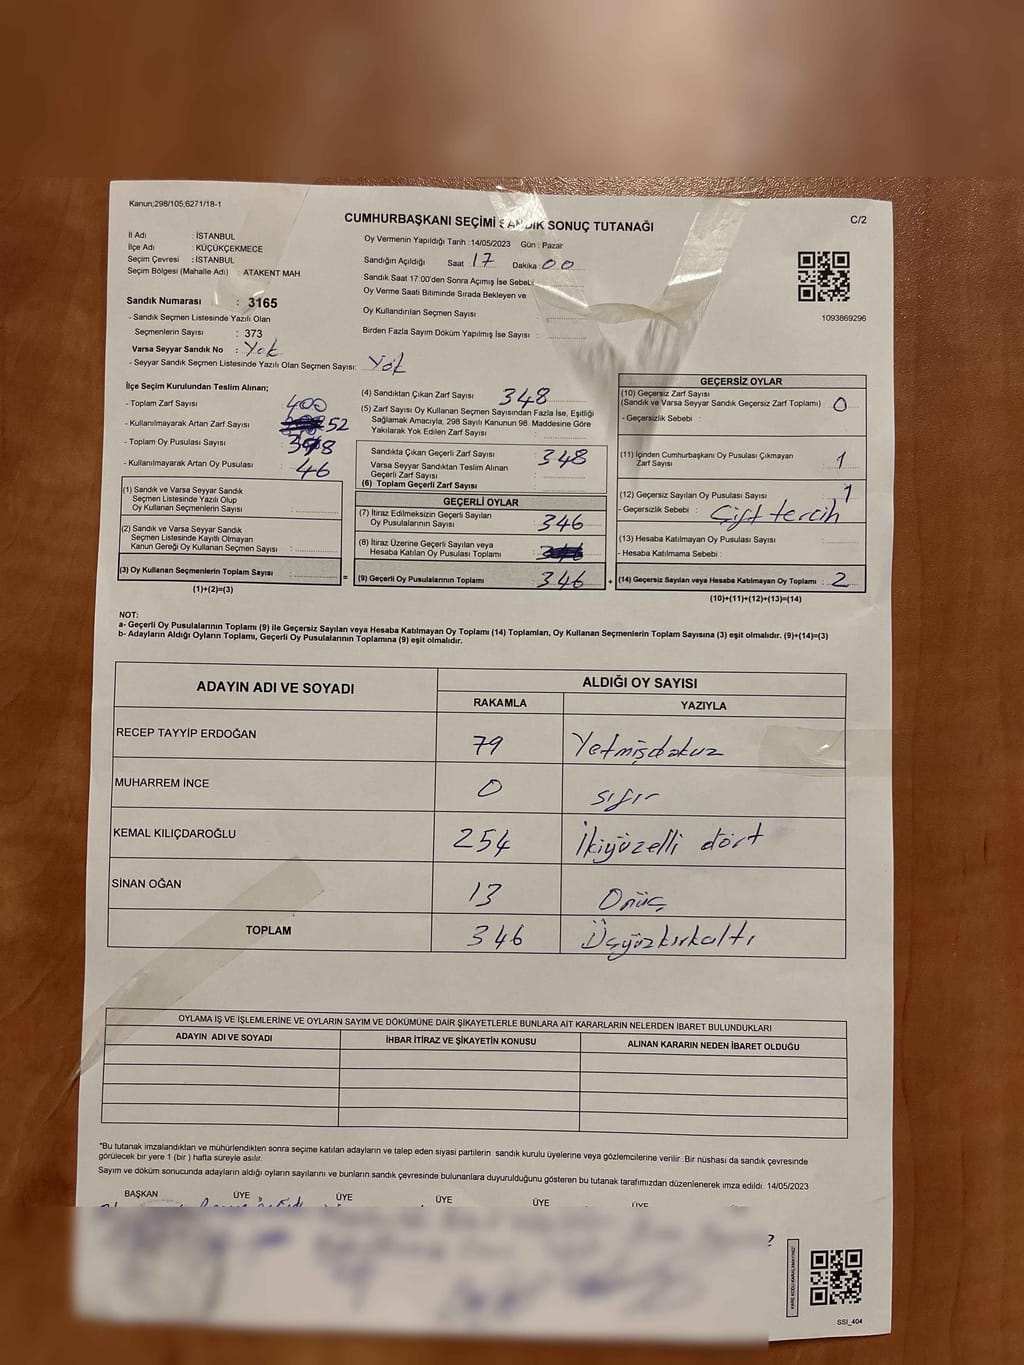 Kanun;298/105;6271/18-1
C/2
CUMHURBAŞKANI SEÇİMİ SANDIK SONUÇ TUTANAĞI
İl Adı : İSTANBUL
İlçe Adı : KÜÇÜKÇEKMECE
Seçim Çevresi : İSTANBUL
Seçim Bölgesi (Mahalle Adı) : ATAKENT MAH.
Sandık Numarası : 3165
- Sandık Seçmen Listesinde Yazılı Olan
Seçmenlerin Sayısı : 373
Varsa Seyyar Sandık No : Yok
- Seyyar Sandık Seçmen Listesinde Yazılı Olan Seçmen Sayısı: Yok
Oy Vermenin Yapıldığı Tarih :14/05/2023 Gün : Pazar
Sandığın Açıldığı Saat 17 Dakika 00
Sandık Saat 17:00'den Sonra Açımış İse Sebebi
Oy Verme Saati Bitiminde Sırada Bekleyen ve
Oy Kullandırılan Seçmen Sayısı :
Birden Fazla Sayım Döküm Yapılmış İse Sayısı :
1093869296
İlçe Seçim Kurulundan Teslim Alınan;
- Toplam Zarf Sayısı : 400
- Kullanılmayarak Artan Zarf Sayısı : 52
- Toplam Oy Pusulası Sayısı :
- Kullanılmayarak Artan Oy Pusulası : 46
(1) Sandık ve Varsa Seyyar Sandık
Seçmen Listesinde Yazılı Olup
Oy Kullanan Seçmenlerin Sayısı :
(2) Sandık ve Varsa Seyyar Sandık
Seçmen Listesinde Kayıtlı Olmayan
Kanun Gereği Oy Kullanan Seçmen Sayısı :
(3) Oy Kullanan Seçmenlerin Toplam Sayısı :
(1)+(2)=(3)
(4) Sandıktan Çıkan Zarf Sayısı : 348
(5) Zarf Sayısı Oy Kullanan Seçmen Sayısından Fazla İse, Eşitliği
Sağlamak Amacıyla, 298 Sayılı Kanunun 98. Maddesine Göre
Yakılarak Yok Edilen Zarf Sayısı :
Sandıkta Çıkan Geçerli Zarf Sayısı : 348
Varsa Seyyar Sandıktan Teslim Alınan
Geçerli Zarf Sayısı :
(6) Toplam Geçerli Zarf Sayısı :
GEÇERLİ OYLAR
(7) İtiraz Edilmeksizin Geçerli Sayılan
Oy Pusulalarının Sayısı : 346
(8) İtiraz Üzerine Geçerli Sayılan veya
Hesaba Katılan Oy Pusulası Toplamı :
(9) Geçerli Oy Pusulalarının Toplamı : 346
GEÇERSİZ OYLAR
(10) Geçersiz Zarf Sayısı
(Sandık ve Varsa Seyyar Sandık Geçersiz Zarf Toplamı) : 0
- Geçersizlik Sebebi :
(11) İçinden Cumhurbaşkanı Oy Pusulası Çıkmayan
Zarf Sayısı : 1
(12) Geçersiz Sayılan Oy Pusulası Sayısı : 1
- Geçersizlik Sebebi : Çift tercih
(13) Hesaba Katılmayan Oy Pusulası Sayısı :
- Hesaba Katılmama Sebebi :
(14) Geçersiz Sayılan veya Hesaba Katılmayan Oy Toplamı : 2
(10)+(11)+(12)+(13)=(14)
NOT:
a- Geçerli Oy Pusulalarının Toplamı (9) ile Geçersiz Sayılan veya Hesaba Katılmayan Oy Toplamı (14) Toplamları, Oy Kullanan Seçmenlerin Toplam Sayısına (3) eşit olmalıdır. (9)+(14)=(3)
b- Adayların Aldığı Oyların Toplamı, Geçerli Oy Pusulalarının Toplamına (9) eşit olmalıdır.
ADAYIN ADI VE SOYADI ALDIĞI OY SAYISI
RAKAMLA YAZIYLA
RECEP TAYYİP ERDOĞAN 79 Yetmişdokuz
MUHARREM İNCE 0 sıfır
KEMAL KILIÇDAROĞLU 254 İkiyüzelli dört
SİNAN OĞAN 13 Onüç
TOPLAM 346 Üçyüzkırkaltı
OYLAMA İŞ VE İŞLEMLERİNE VE OYLARIN SAYIM VE DÖKÜMÜNE DAİR ŞİKAYETLERLE BUNLARA AİT KARARLARIN NELERDEN İBARET BULUNDUKLARI
ADAYIN ADI VE SOYADI İHBAR İTİRAZ VE ŞİKAYETİN KONUSU ALINAN KARARIN NEDEN İBARET OLDUĞU
*Bu tutanak imzalandıktan ve mühürlendikten sonra seçime katılan adayların ve talep eden siyasi partilerin sandık kurulu üyelerine veya gözlemcilerine verilir. Bir nüshası da sandık çevresinde
görülecek bir yere 1 (bir ) hafta süreyle asılır.
Sayım ve döküm sonucunda adayların aldığı oyların sayılarını ve bunların sandık çevresinde bulunanlara duyurulduğunu gösteren bu tutanak tarafımızdan düzenlenerek imza edildi. 14/05/2023
BAŞKAN ÜYE ÜYE ÜYE ÜYE ÜYE
SSİ_404